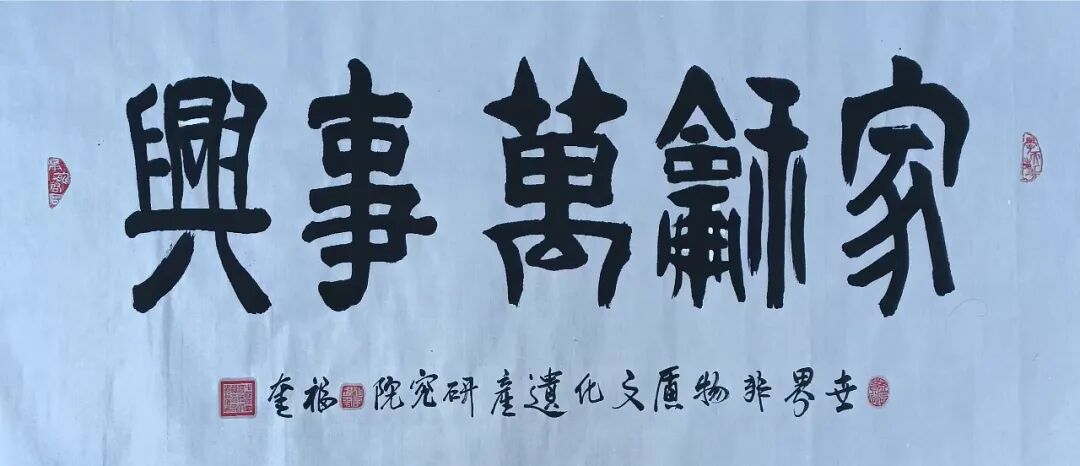 家龢萬事興
世界非物質文化遺產研究院 福奎